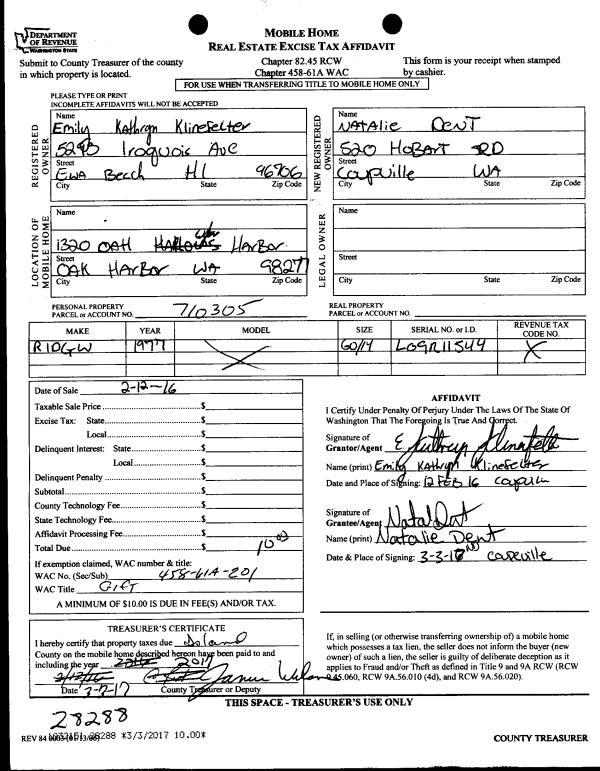 DEPARTMENT OF REVENUE
WASHINGTON STATE
MOBILE HOME
REAL ESTATE EXCISE TAX AFFIDAVIT
Submit to County Treasurer of the county
in which property is located.
Chapter 82.45 RCW
Chapter 458-61A WAC
This form is your receipt when stamped
by cashier.
FOR USE WHEN TRANSFERRING TITLE TO MOBILE HOME ONLY
PLEASE TYPE OR PRINT
INCOMPLETE AFFIDAVITS WILL NOT BE ACCEPTED
REGISTERED OWNER
Name
Emily Kathryn Klinefelter
5295 Iroquois Ave
Street
Ewa Beach HI 96706
City State Zip Code
NEW REGISTERED OWNER
Name
NATALIE DENT
520 HOBART RD
Street
Coupville WA
City State Zip Code
LOCATION OF MOBILE HOME
Name
1320 OAH HARBOR
Street
OAK HARBOR WA 98277
City State Zip Code
LEGAL OWNER
Name
Street
City State Zip Code
PERSONAL PROPERTY
PARCEL or ACCOUNT NO. 710305
REAL PROPERTY
PARCEL or ACCOUNT NO.
MAKE YEAR MODEL SIZE SERIAL NO. or I.D. REVENUE TAX CODE NO.
RIDGW 1977 X 60/14 LO9R11544 X
Date of Sale 2-12-16
Taxable Sale Price $
Excise Tax: State $
Local $
Delinquent Interest: State $
Local $
Delinquent Penalty $
Subtotal $
County Technology Fee $
State Technology Fee $
Affidavit Processing Fee $
Total Due $ 10.00
If exemption claimed, WAC number & title:
WAC No. (Sec/Sub) 458-61A-201
WAC Title Gift
A MINIMUM OF $10.00 IS DUE IN FEE(S) AND/OR TAX.
AFFIDAVIT
I Certify Under Penalty Of Perjury Under The Laws Of The State Of
Washington That The Foregoing Is True And Correct.
Signature of
Grantor/Agent
Name (print) Emily Kathryn Klinefelter
Date and Place of Signing: 12 FEB 16
Signature of
Grantee/Agent
Name (print) Natalie Dent
Date & Place of Signing: 3-3-17
TREASURER'S CERTIFICATE
I hereby certify that property taxes due Island
County on the mobile home described hereon have been paid to and
including the year 2017
Date 3-2-17 County Treasurer or Deputy
If, in selling (or otherwise transferring ownership of) a mobile home
which possesses a tax lien, the seller does not inform the buyer (new
owner) of such a lien, the seller is guilty of deliberate deception as it
applies to Fraud and/or Theft as defined in Title 9 and 9A RCW (RCW
9.45.060, RCW 9A.56.010 (4d), and RCW 9A.56.020).
THIS SPACE - TREASURER'S USE ONLY
28288
REV 84 28288 *3/3/2017 10.00*
COUNTY TREASURER